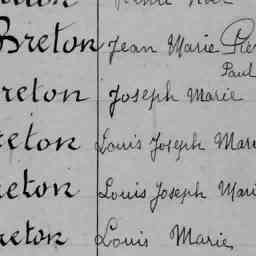 Breton Jean Marie
Paul
reton Joseph Marie
reton Louis Joseph Mari
reton Louis Joseph Mari
reton Louis Marie